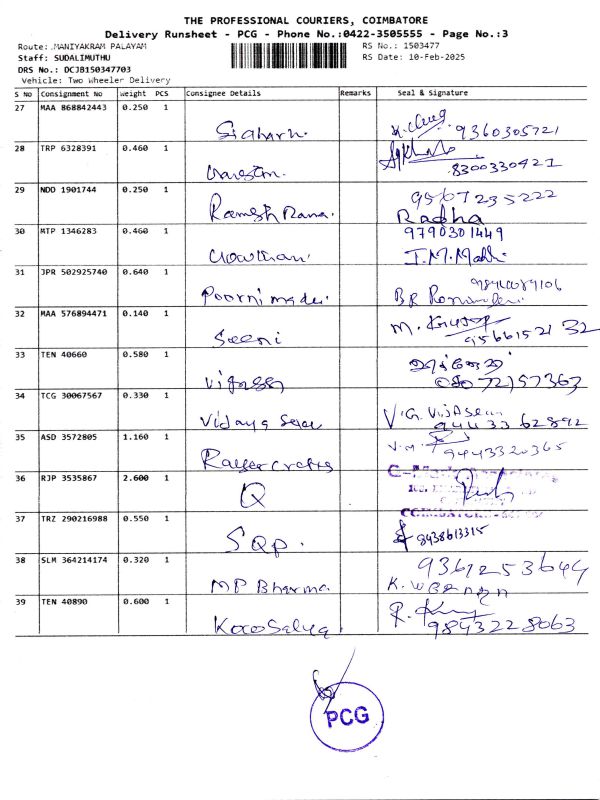 THE PROFESSIONAL COURIERS, COIMBATORE
Delivery Runsheet - PCG - Phone No.:0422-3505555 - Page No.:3
Route: .MANIYAKRAM PALAYAM RS No.: 1503477
Staff: SUDALIMUTHU RS Date: 10-Feb-2025
DRS No.: DCJB150347703
Vehicle: Two Wheeler Delivery
S No Consignment No Weight PCS Consignee Details Remarks Seal & Signature
27 MAA 868842443 0.250 1
9360305721
28 TRP 6328391 0.460 1
8300330421
29 NDD 1901744 0.250 1 9567235222
Ramesh Radha
30 MTP 1346283 0.460 1 9790301449
Gowtham
31 JPR 502925740 0.640 1
Poornimadevi
32 MAA 576894471 0.140 1
Seeni 9566152132
33 TEN 40660 0.580 1
34 TCG 30067567 0.330 1
Vidaya 9443362892
35 ASD 3572805 1.160 1 V.M.
9443320365
36 RJP 3535867 2.600 1
Q
37 TRZ 290216988 0.550 1
SQP. 8438613315
38 SLM 364214174 0.320 1 9361253644
MP Bharma.
39 TEN 40890 0.600 1
9843228063
PCG